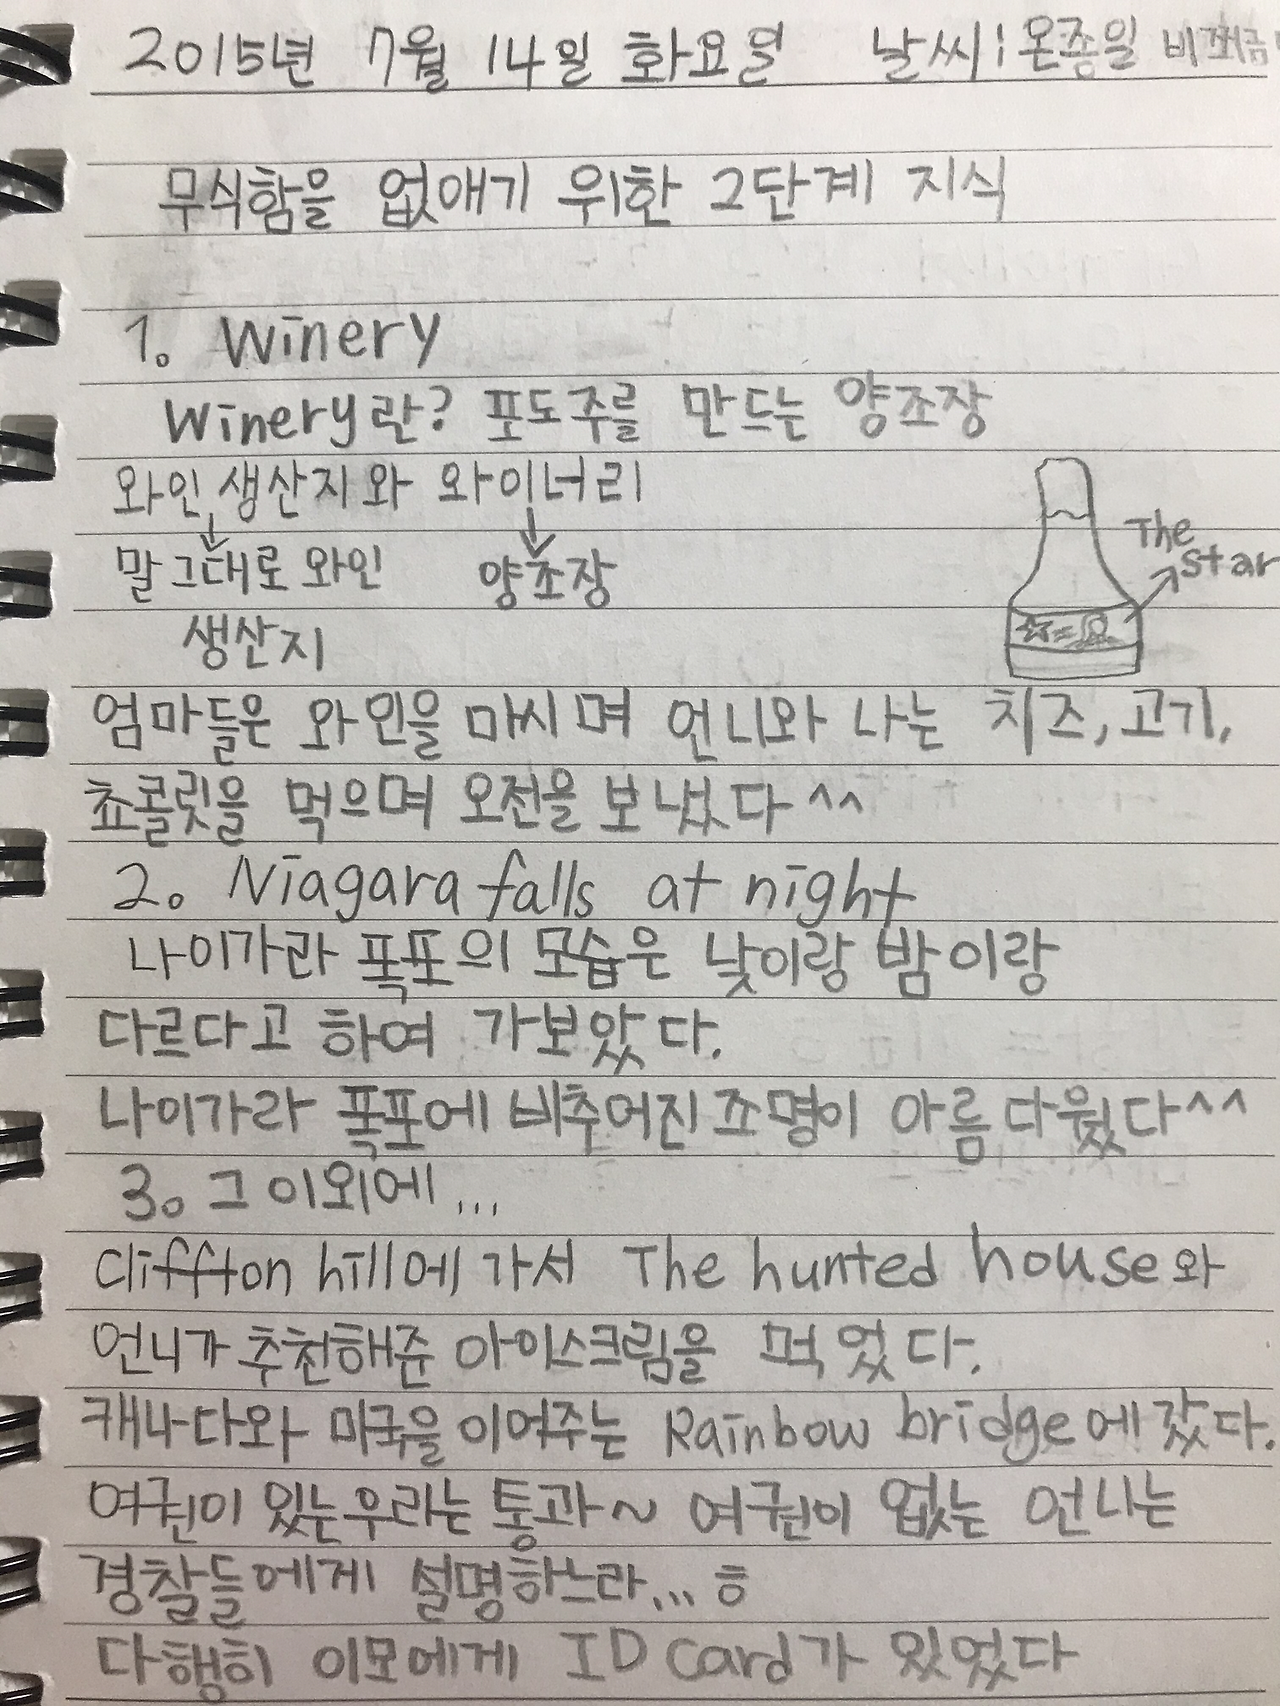 2015년 7월 14일 화요일 날씨 : 온종일 비
무식함을 없애기 위한 2단계 지식
1. Winery
Winery란? 포도주를 만드는 양조장
와인 생산지와 와이너리
말 그대로 와인 양조장
생산지
The
star
엄마들은 와인을 마시며 언니와 나는 치즈, 고기,
쵸콜릿을 먹으며 오전을 보냈다^^
2. Niagara falls at night
나이가라 폭포의 모습은 낮이랑 밤이랑
다르다고 하여 가보았다.
나이가라 폭포에 비추어진 조명이 아름다웠다^^
3. 그 이외에...
Cliffton hill에 가서 The hunted house와
언니가 추천해준 아이스크림을 먹었다.
캐나다와 미국을 이어주는 Rainbow bridge에 갔다.
여권이 있는 우리는 통과~ 여권이 없는 언니는
경찰들에게 설명하느라... ㅎ
다행히 이모에게 ID card가 있었다